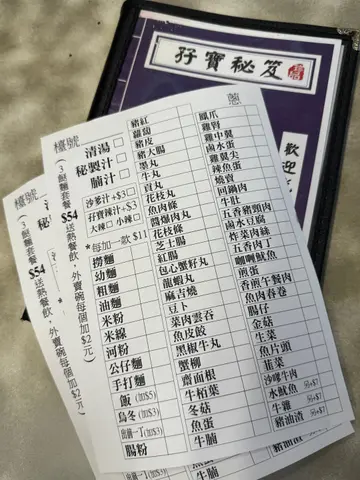 孖寶秘笈
歡迎
檯號
(3餸麵套餐 $54送熱餐飲，外賣碗每個加$2元)
清湯□
秘製汁□
腩汁□
沙爹汁+$3□
孖寶辣汁+$3□
大辣□ 小辣□
*每加一款 $11
撈麵
幼麵
粗麵
油麵
米粉
米線
河粉
公仔麵
手打麵
飯(加$5)
烏冬(加$3)
出前一丁(加$3)
腸粉
豬紅
蘿蔔
豬皮
豬大腸
墨丸
牛丸
貢丸
花枝丸
魚肉條
醬爆肉丸
花枝條
芝士腸
紅腸
包心蟹籽丸
龍蝦丸
麻吉燒
豆卜
菜肉雲吞
魚皮餃
黑椒牛丸
蟹柳
齋面根
牛栢葉
冬菇
魚蛋
牛腩
蔥
鳳爪
雞腎
雞中翼
鹵水蛋
雞翼尖
辣魚蛋
燒賣
回鍋肉
牛肚
五香豬頸肉
鹵水豆腐
炸菜肉絲
五香肉丁
咖喱魷魚
煎蛋
香煎午餐肉
魚肉春卷
腸仔
金菇
生菜
魚片頭
韭菜
沙嗲牛肉
水魷魚 另+$7
牛雜 另+$7
豬油渣 另+$7
檯號
(3餸麵套餐 $54送熱餐飲，外賣碗每個加$2元)